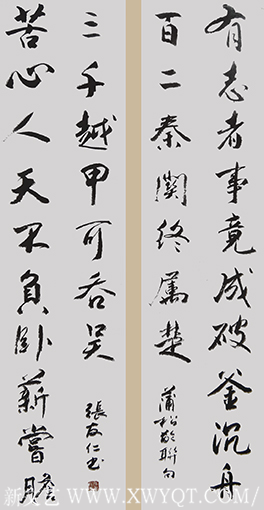 有志者事竟成破釜沉舟
百二秦關終屬楚
蒲松齡聯句
苦心人天不負臥薪嘗膽
三千越甲可吞吳
張友仁书
WWW.XWYQT.COM